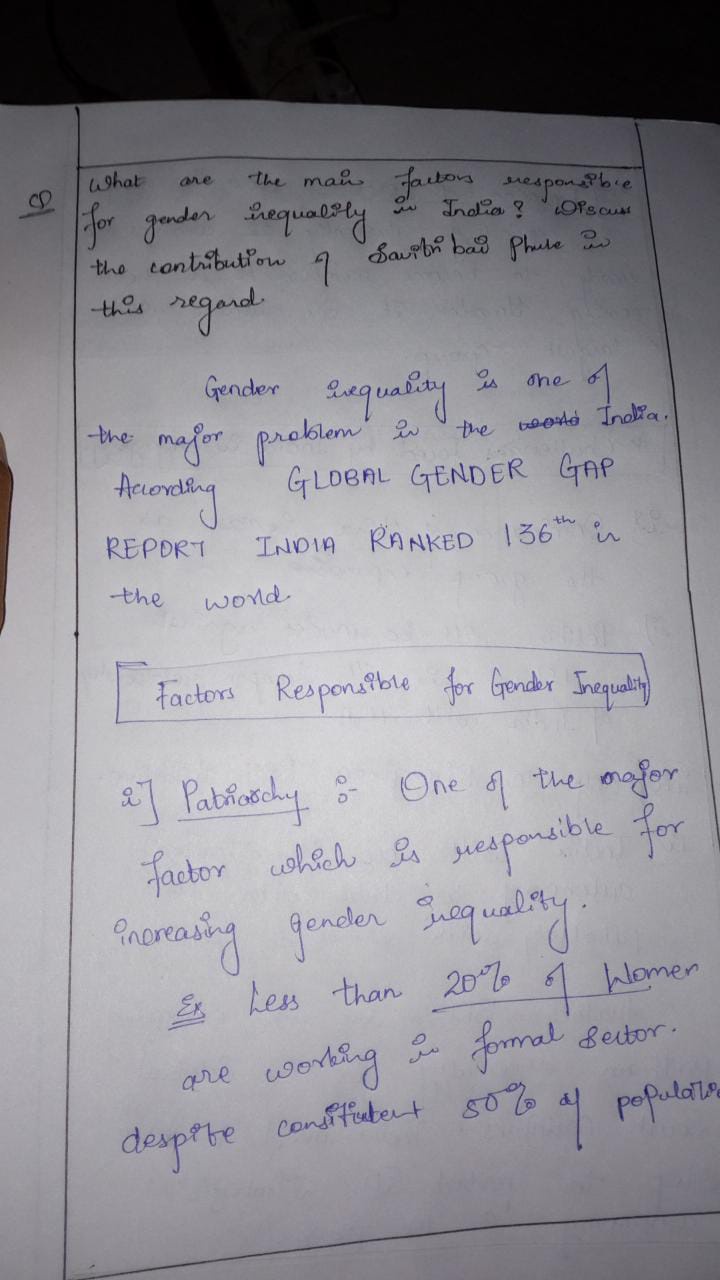 Q
What are the main factors responsible
for gender inequality in India? Discuss
the contribution of Savitri bai Phule in
this regard.
Gender inequality is one of
the major problem in the world India.
According GLOBAL GENDER GAP
REPORT INDIA RANKED 136th in
the world.
Factors Responsible for Gender Inequality
i] Patriarchy :- One of the major
factor which is responsible for
increasing gender inequality.
Ex Less than 20% of Women
are working in formal sector.
despite constitutent 50% of populatio